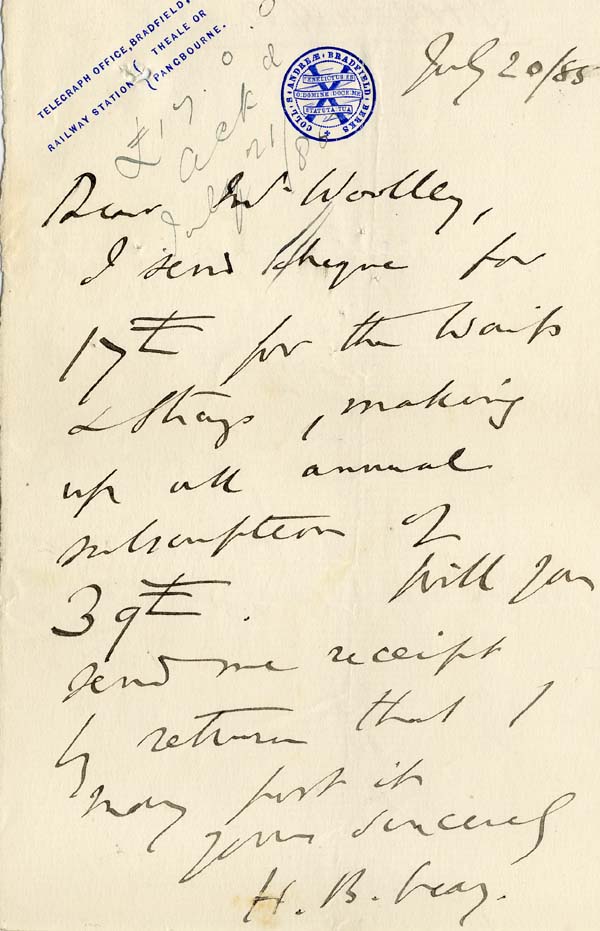 TELEGRAPH OFFICE, BRADFIELD,
RAILWAY STATION { THEALE OR
{ PANGBOURNE.
COLL: S: ANDREÆ: BRADFIELD: BERKS
BENEDICTUS ES
O DOMINE DOCE ME
STATUTA TUA
July 20/85
£17. 0. 0
Ack d
July 21/85
Dear Mr Woolley,
I send cheque for
17£ for the Waifs
& Strays, making
up all annual
subscription of
39£. Will you
send me receipt
by return that I
may post it
Yours sincerely
H. B. Gray.